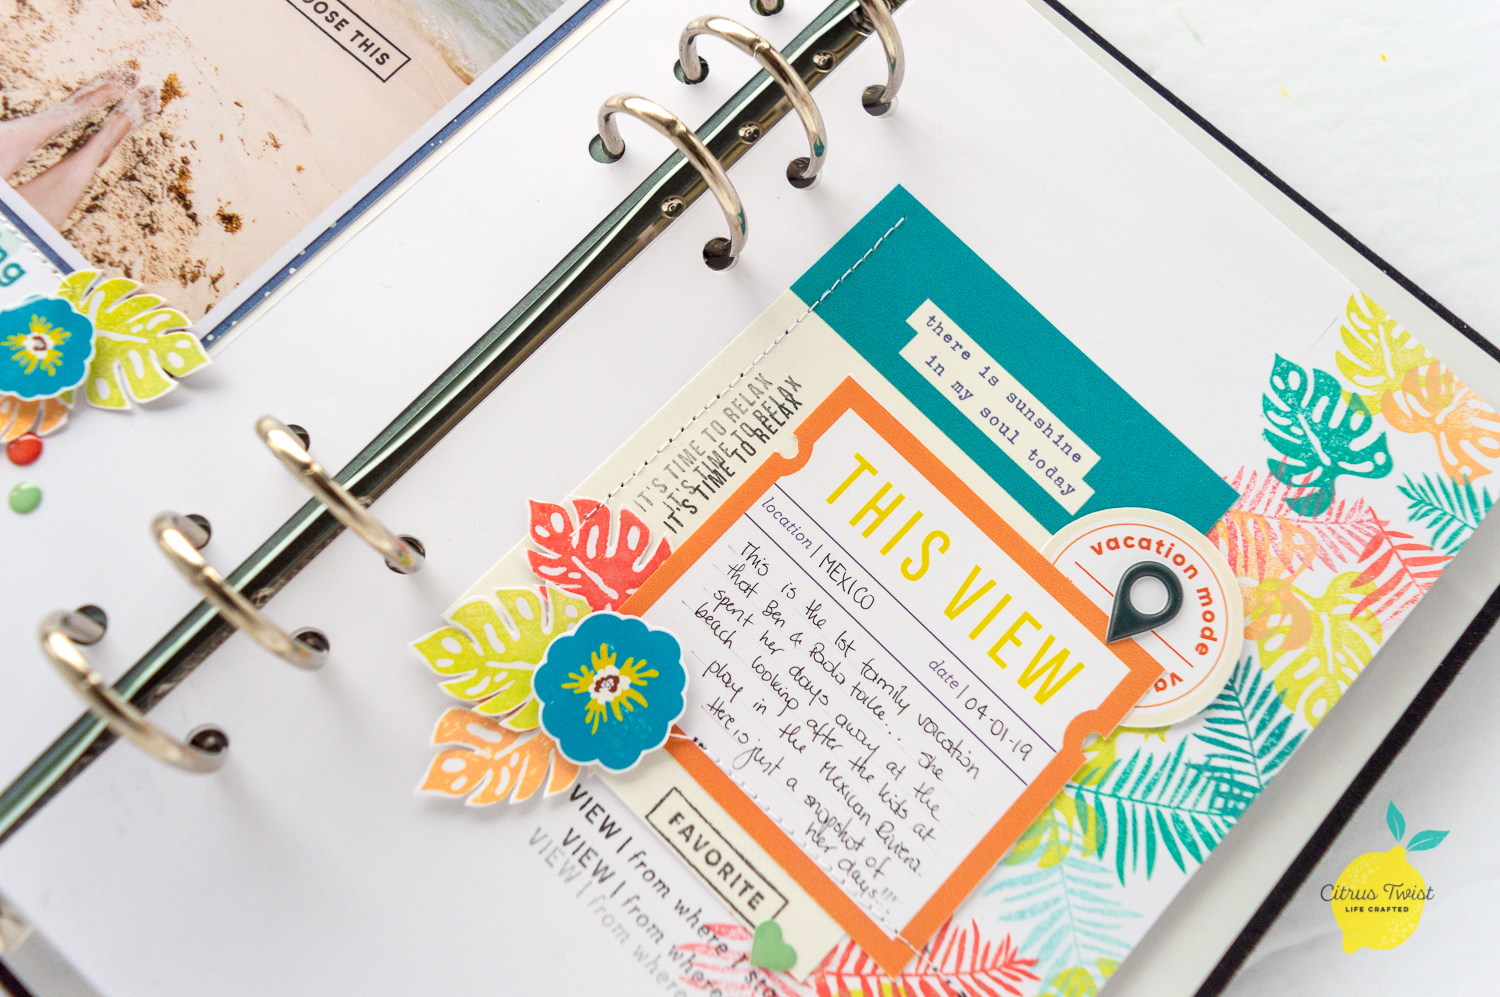 OOSE THIS
ng
there is sunshine
in my soul today
IT'S TIME TO RELAX
IT'S TIME TO RELAX
IT'S TIME TO RELAX
vacation mode
va
THIS VIEW
location | MEXICO
date | 04-01-19
This is the 1st family vacation
that Ben & Paola take... She
spent her days away at the
beach looking after the kids at
play in the Mexican Riviera.
Here is just a snapshot of
her days!!!
FAVORITE
VIEW | from where I sta
VIEW | from where
VIEW | from where
Citrus Twist
LIFE CRAFTED